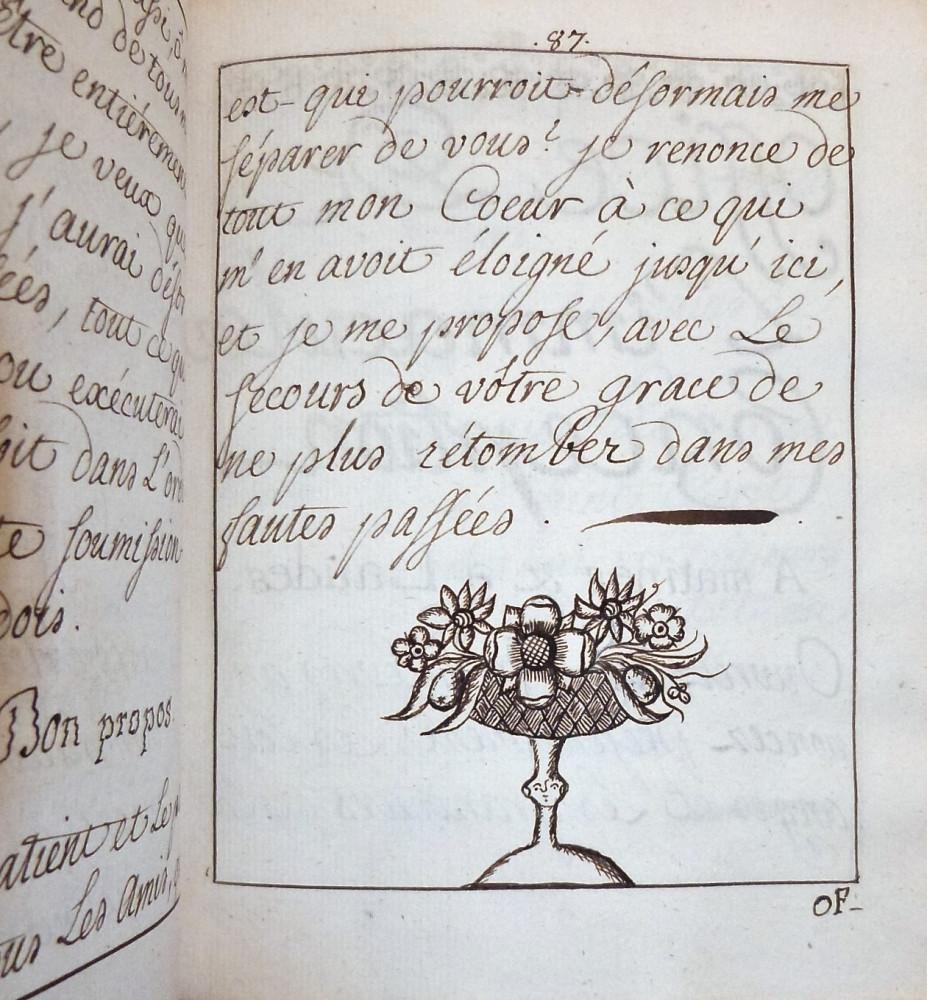 être entiérement
je veux
j'aurai
tout ce qu
ou exécuterai
dans L'or
soumission
dois.
Bon propos.
atient et Les
Les Amis,
.87.
est-que pourroit-désormais me
séparer de vous? je renonce de
tout mon Coeur à ce qui
m'en avoit éloigné jusqu'ici,
et je me propose, avec Le
secours de vôtre grace de
ne plus rétomber dans mes
fautes passées.
OF-